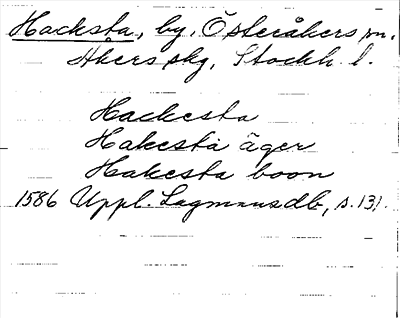 Hacksta, by, Österåkers sn,
Åkers skg, Stockh. l.
Hackesta
Hakesta äger
Hakesta boon
1586 Uppl. Lagmansdb, s. 131.